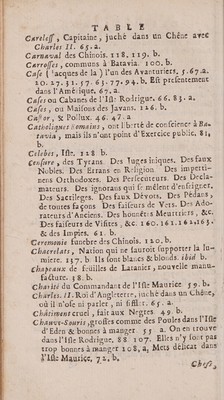 TABLE
Careless, Capitaine, juché dans un Chêne avec
Charles II. 65. a.
Carnaval des Chinois. 118, 119. b.
Carrosses, communs à Batavia. 100. b.
Case (Jacques de la) l'un des Avanturiers. 5. 67. a.
20. 27. 51. 57. 63. 77. 94. b. Est presentement
dans l'Amérique. 67. a.
Cases ou Cabanes de l'Isle Rodrigue. 66. 83. a.
Cases, ou Maisons des Javans. 126. b.
Castor, & Pollux. 46. 47. a
Catholiques Romains, ont liberté de conscience à Ba-
tavia, mais ils n'ont point d'Exercice public. 81,
b.
Celebes, Isle. 128 b.
Censure, des Tyrans. Des Juges iniques. Des faux
Nobles. Des Errans en Religion. Des imperti-
nens Orthodoxes. Des Persecuteurs. Des Decla-
mateurs. Des ignorans qui se mêlent d'enfeigner.
Des Sacrileges. Des faux Dévots. Des Pédans,
de toutes façons Des faiseurs de Vers. Des Ado-
rateurs d'Anciens. Des honnêtes Meurtriers, &c.
Des faiseurs de Visites, &c. 160. 161. 162. 163.
& des Impies. 61. b.
Ceremonie funebre des Chinois. 120. b.
Chacrelats, Nation qui ne sauroit supporter la lu-
miere. 157. b. Ils sont blancs & blonds. ibid b.
Chapeaux de feuilles de Latanier, nouvelle manu-
facture. 38. b.
Charité du Commandant de l'Isle Maurice 59. b.
Charles. II. Roi d'Angleterre, juché dans un Chêne,
où il n'ose ni parler, ni siffler. 65. a.
Châtiment cruel, fait aux Negres. 49 b.
Chauve-Souris, grosses comme des Poules dans l'Isle
d'Eden & bonnes à manger 55 a. On en trouve
dans l'Isle Rodrigue. 88 107. Elles n'y sont pas
trop bonnes à manger 108, a, Mets délicat dans
l'Isle Maurice. 72. b.